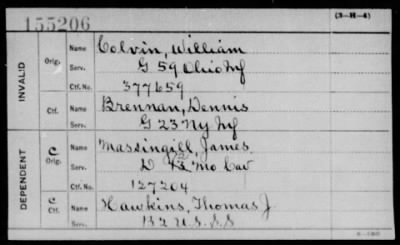 155206
(3-H-4)
INVALID
Orig.
Name Colvin, William
Serv. G 59 Ohio Inf
Ctf. No. 377659
Ctf.
Name Brennan, Dennis
Serv. G 23 Ny Inf
DEPENDENT
C Orig.
Name Massingill, James
Serv. D Mo Cav
Ctf. No. 127204
C Ctf.
Name Hawkins, Thomas J.
Serv. U.S.S.S